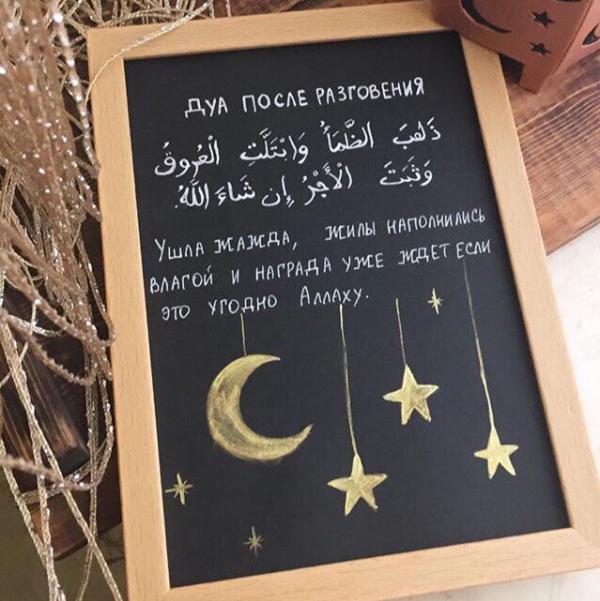 ДУА ПОСЛЕ РАЗГОВЕНИЯ
ذَهَبَ الظَّمَأُ وَابْتَلَّتِ الْعُرُوقُ
وَثَبَتَ الْأَجْرُ إِن شَاءَ اللَّهُ.
УШЛА ЖАЖДА, ЖИЛЫ НАПОЛНИЛИСЬ
ВЛАГОЙ И НАГРАДА УЖЕ ЖДЕТ ЕСЛИ
ЭТО УГОДНО АЛЛАХУ.